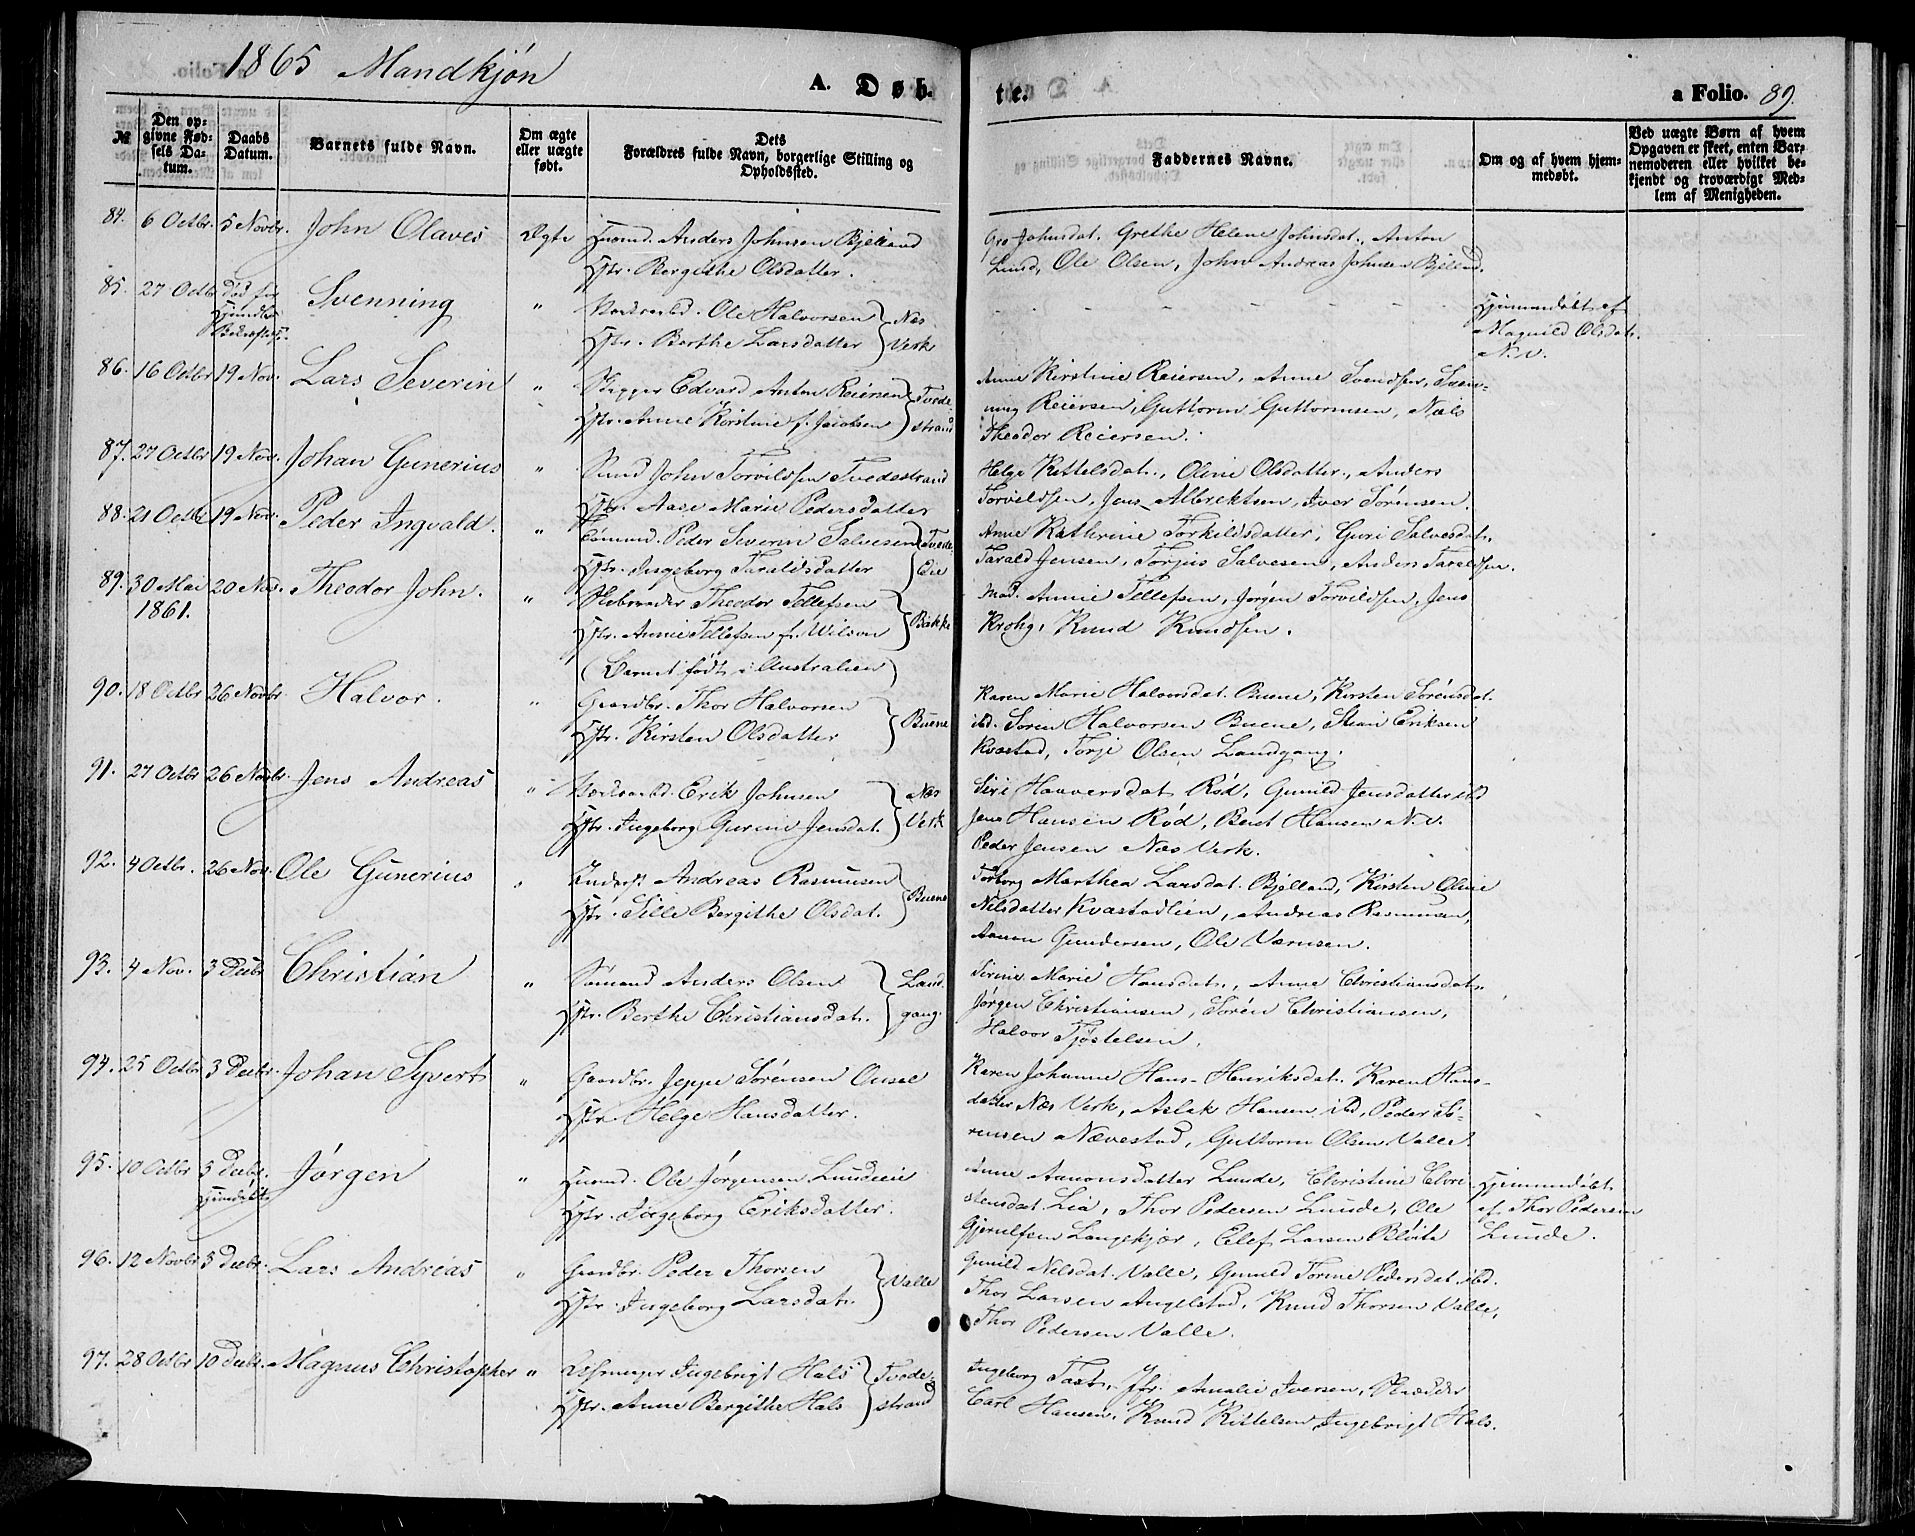 1865 Mandkjøn
A. Døb-
te.
a Folio. 89.
№
Den op-
givne Fød-
sels Da-
tum.
Daabs
Datum.
Barnets fulde Navn.
Om ægte
eller uægte
født.
Dets
Forældres fulde Navn, borgerlige Stilling og
Opholdssted.
Faddernes Navne.
Om og af hvem hjem-
medøbt.
Ved uægte Børn af hvem
Opgaven er skeet, enten Bar-
nemoderen eller hvilket be-
kjendt og troværdigt Med-
lem af Menigheden.
84. 6 Octbr. 5 Novbr. John Olaves Ægte Husmd. Anders Johnsen Bjelland
Hstr. Bergithe Olsdatter.
Gro Johnsdat. Grethe Helene Johnsdat., Anton
Lund, Ole Olsen, John Andreas Johnsen Bjelland.
85. 27 Octbr død før Svenning " Ole Halvorsen Næs
Hstr. Berthe Larsdatter Verk
Hjemmedøbt af
Magnild Olsdat.
N.v.
86. 16 Octbr 19 Nov. Lars Severin " Skipper Edvard Anton Reiersen Tvede
Hstr. Anne Kirstine f. Jacobsen strand
Anne Kirstine Reiersen, Anne Svendsen, Sven-
ning Reiersen, Guttorm Guttormsen, Niels
Theodor Reiersen.
87. 27 Octbr 19 Nov. Johan Gunerius " John Torvildsen Tvedestrand
Hstr. Aase Marie Pedersdatter
Helge Kittelsdat., Oline Olsdatter, Anders
Torvildsen, Jens Albrektsen, Iver Sørensen.
88. 21 Octbr 19 Nov. Peder Ingvald. " Peder Severin Salvesen Tvede
Hstr. Ingeborg Taraldsdatter Eie
Anne Kathrine Torkildsdatter, Guri Salvesdat.
Tarald Jensen, Torjus Salvesen, Anders Taraldsen.
89. 30 Mai 20 Nov. Theodor John. " Skibsreder Theodor Tellefsen
1861. Hstr. Annie Tellefsen f. Wilson Bakke
(Barnet født i Australien)
Mad. Annie Tellefsen, Jørgen Torvildsen, Jens
Krohg, Knud Knudsen.
90. 18 Octbr 26 Novbr. Halvor. " Gaardbr. Thor Halvorsen
Hstr. Kirsten Olsdatter Buene
Karen Marie Halvorsdat. Buene, Kirsten Sørensdat.
ibd. Søren Halvorsen Buene, Stian Eriksen
Kvastad, Torje Olsen Landgang.
91. 27 Octbr 26 Novbr. Jens Andreas " Erik Johnsen Næs
Hstr. Ingeborg Gurine Jensdat. Verk
Siri Haaversdat Rød, Gunild Jensdatter ibd
Jens Hansen Rød, Bent Hansen N.v.
Peder Jensen Næs Verk.
92. 4 Octbr. 26 Nov. Ole Gunerius " Inderst Andreas Rasmussen
Hstr. Sille Bergithe Olsdat. Buene
Torborg Marthea Larsdat. Bjelland, Kirsten Oline
Nilsdatter Kvastadlien, Andreas Rasmussen,
Aanon Gundersen, OleVærnsen.
93. 4 Nov. 3 Decbr Christian " Sømand Anders Olsen Land
Hstr. Berthe Christiansdat. gang.
Sirine Marie Hansdat., Anne Christiansdat.
Jørgen Christiansen, Søren Christiansen,
Halvor Tjøstelsen.
94. 25 Octbr 3 Decbr. Johan Syvert " Gaardbr. Jeppe Sørensen
Hstr Helge Hansdatter.
Karen Johanne Hans-Henriksdat. Karen Hans-
datter Næs Verk, Aslak Hansen ibd, Peder Sø-
rensen Nævestad, Guttorm Olsen Valle.
95. 10 Octbr 3 Decbr. Jørgen " Husmd. Ole Jørgensen Lundeeie
Hjemdøbt Hstr. Ingeborg Eriksdatter.
Anne Aanonsdatter Lunde, Christine Chri-
stensdat. Lia, Thor Pedersen Lunde, Ole
Gjerulfsen Langekjær, Elef Larsen
Hjemmedøbt
af Thor Pedersen
Lunde.
96. 12 Novbr 3 Decbr. Lars Andreas " Gaardbr. Peder Thorsen
Hstr. Ingeborg Larsdat. Valle
Gunild Nilsdat. Valle, Gunild Torine Pedersdat. ibd.
Thor Larsen Angelstad, Knud Thorsen Valle,
Thor Pedersen Valle.
97. 28 Octbr 10 Decbr. Magnus Christopher " Ingebrigt Hals Tvede-
Hstr. Anne Bergithe Hals strand
Ingeborg Jfr. Amalie Iversen, Skrædder
Carl Hansen, Knud Kittelsen Ingebrigt Hals.